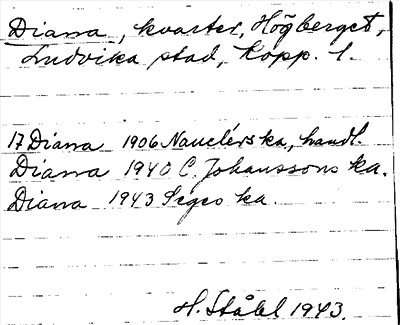 Diana, kvarter, Högberget,
Ludvika stad, Kopp. l.
17 Diana 1906 Nauclérska, handl.
Diana 1940 C. Johanssons ka.
Diana 1943 Seges ka.
H. Ståhl 1943.